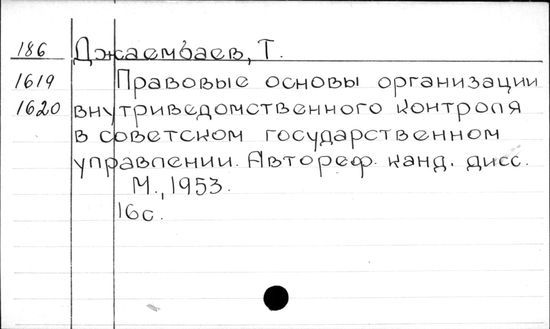 186 Джаембаев, Т.
1619 Правовые основы организации
1620 внутриведомственного контроля
в советском государственном
управлении. Автореф. канд. дисс.
М., 1953.
16с.